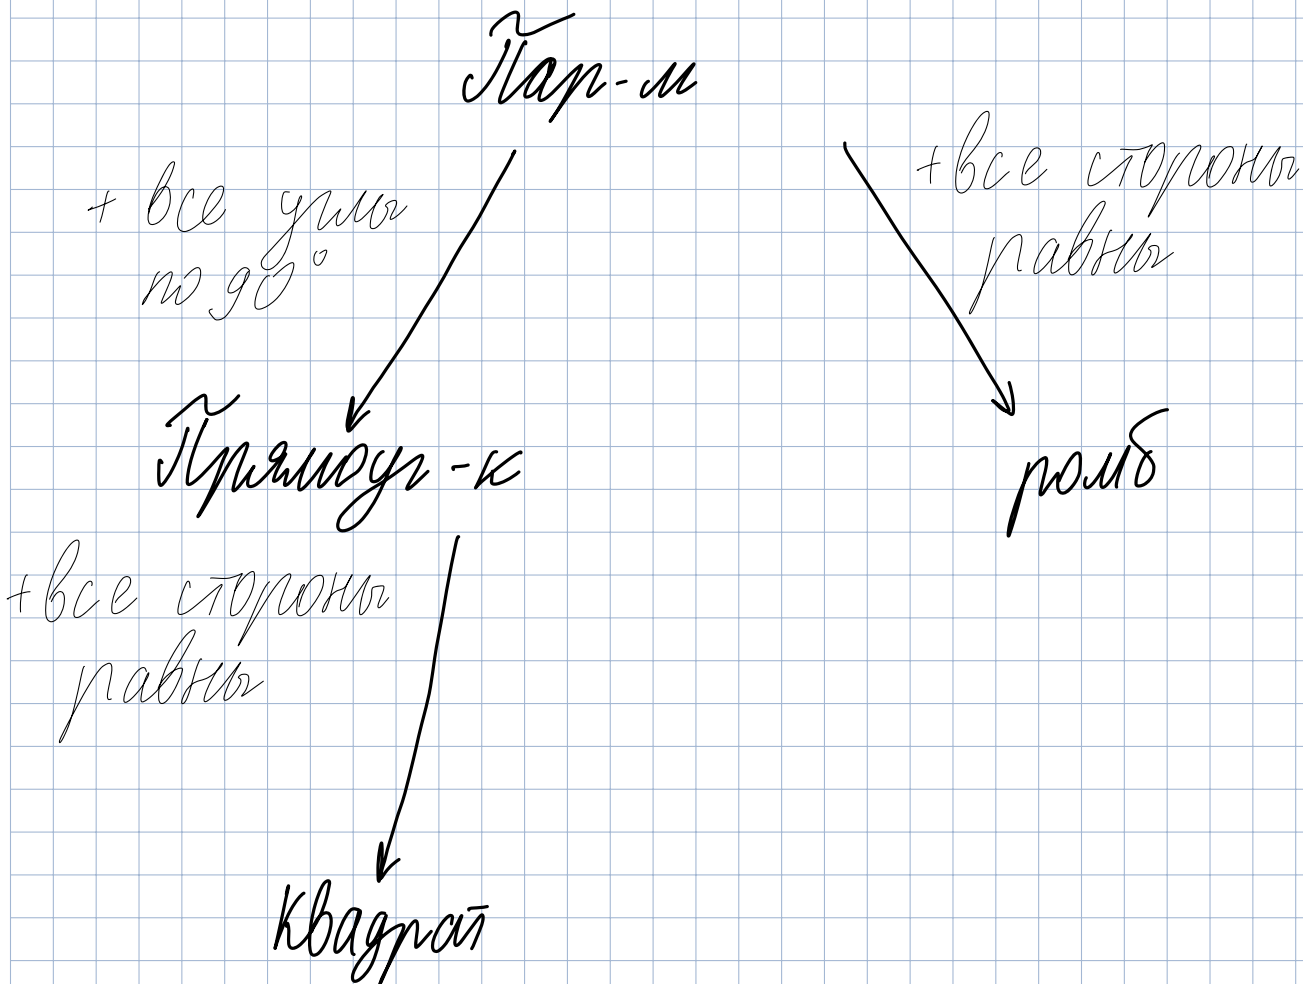 Пар-м
+ все углы
по 90°
+ все стороны
равны
Прямоуг-к
ромб
+ все стороны
равны
Квадрат